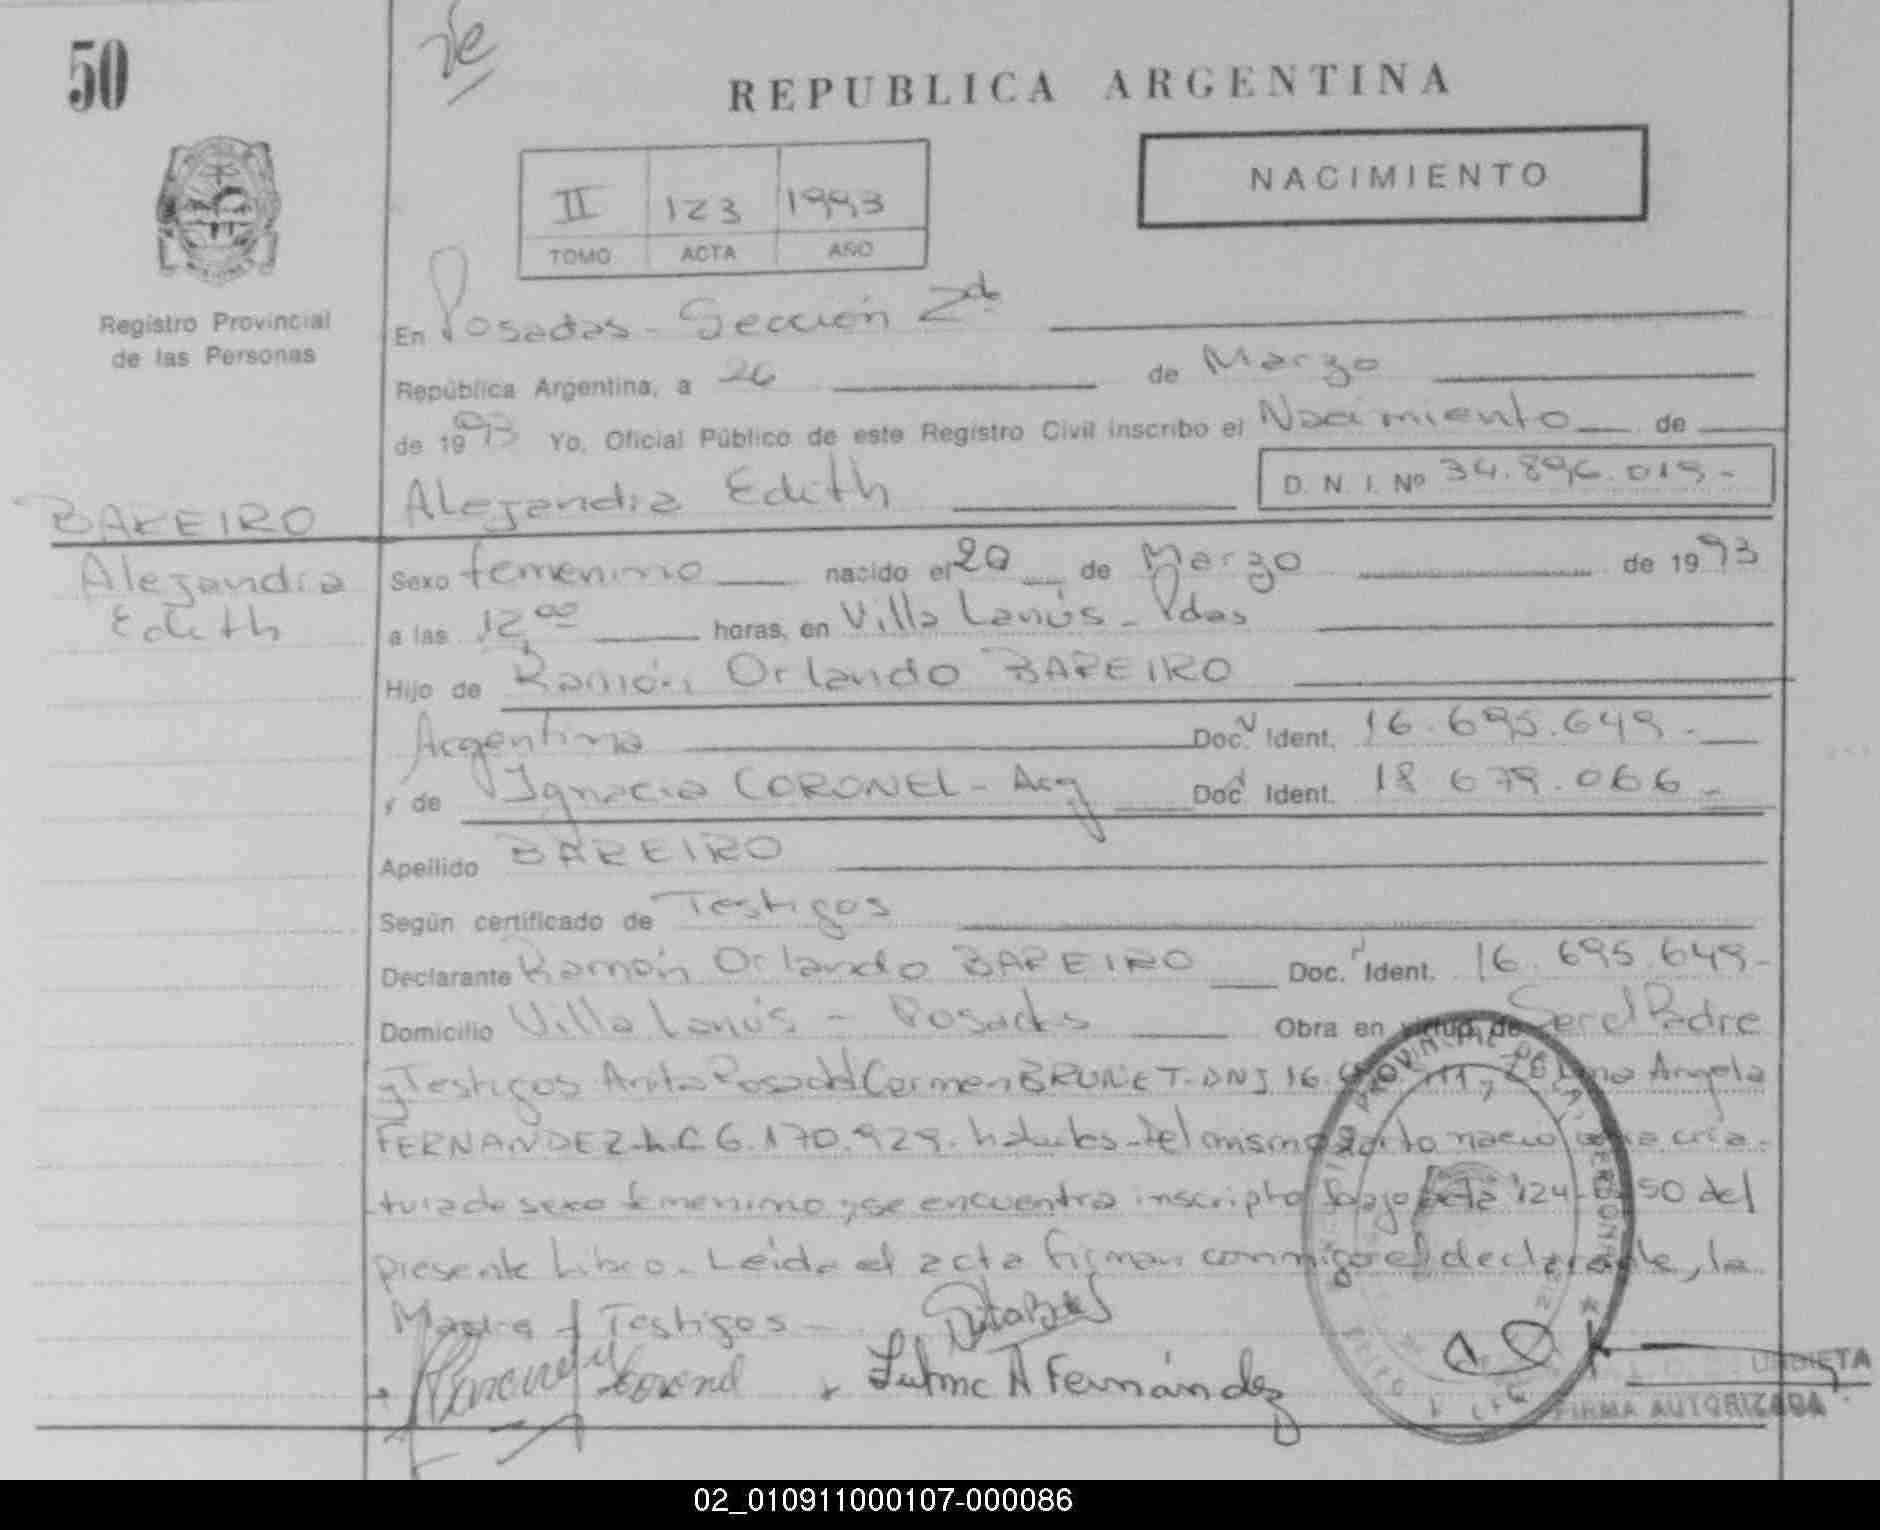 50
REPUBLICA ARGENTINA
NACIMIENTO
II 123 1993
TOMO ACTA AÑO
Registro Provincial
de las Personas
En Posadas - Sección 2da
República Argentina, a 26 de Marzo
de 1993 Yo, Oficial Público de este Registro Civil inscribo el Nacimiento de
Alejandra Edith D. N. I. Nº 34.896.019-
BAREIRO
Alejandra
Edith
Sexo femenino nacido el 20 de Marzo de 1993
a las 12,00 horas, en Villa Lanús - Pdas
Hijo de Ramón Orlando BAREIRO
Argentino Doc. Ident. 16.695.649-
y de Ignacia CORONEL - Arg Doc. Ident. 18.679.066-
Apellido BAREIRO
Según certificado de Testigos
Declarante Ramón Orlando BAREIRO Doc. Ident. 16.695.649-
Domicilio Villa Lanús - Posadas Obra en virtud de Ser el Padre
y Testigos Anita Rosa del Carmen BRUNET - DNI 16. Angela
FERNANDEZ L.C 6.170.929. hábiles - Del mismo parto nacio otra cria-
tura de sexo femenino y se encuentra inscripto bajo Acta 124 50 del
presente Libro - Leída el acta firman conmigo el declarante, la
Madre y Testigos -
Coronel A Fernández
FIRMA AUTORIZADA
02_010911000107-000086